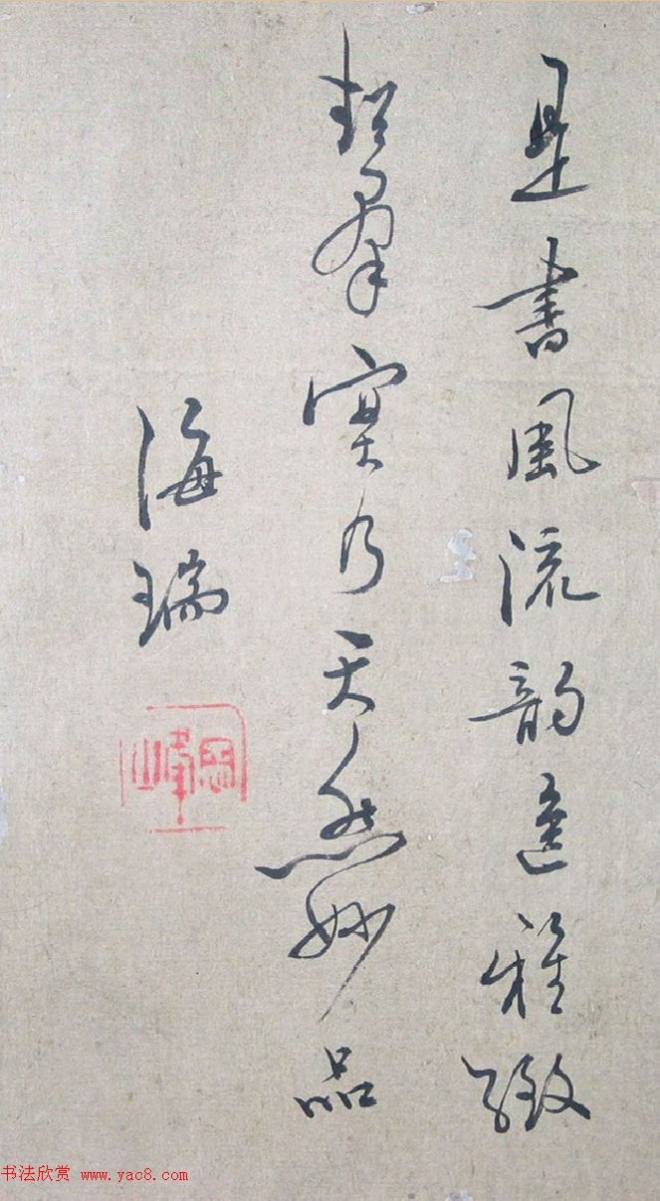 是書風流韵逸雅緻
超羣實乃天然妙品
海瑞
书法欣赏 www.yac8.com